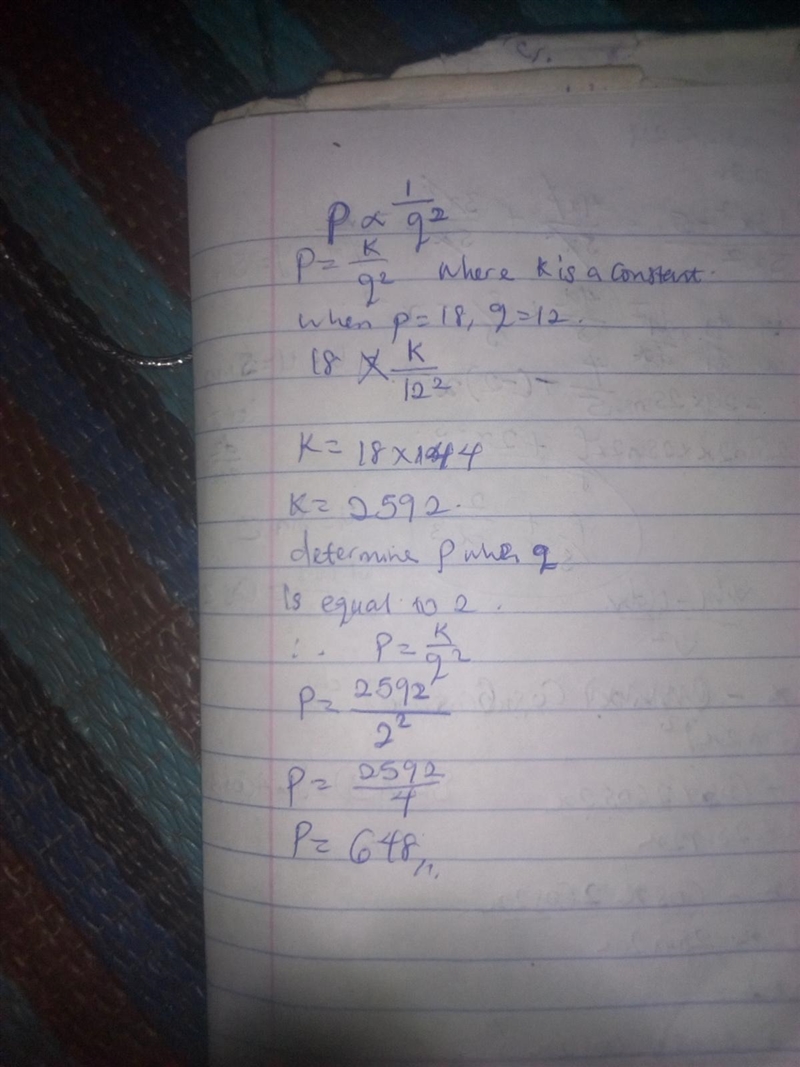 P ∝ 1/q²
P = K/q² where K is a constant.
when p = 18, q = 12.
18 = K/12²
K = 18 × 144
K = 2592.
determine P when q
is equal to 2.
∴ P = K/q²
P = 2592/2²
P = 2592/4
P = 648